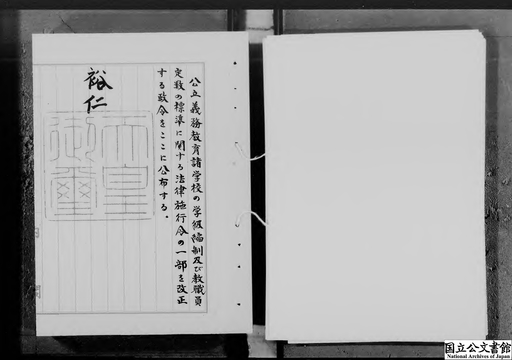 公立義務教育諸学校の学級編制及び教職員
定数の標準に関する法律施行令の一部を改正
する政令をここに公布する。
裕仁
天皇御璽
国立公文書館
National Archives of Japan